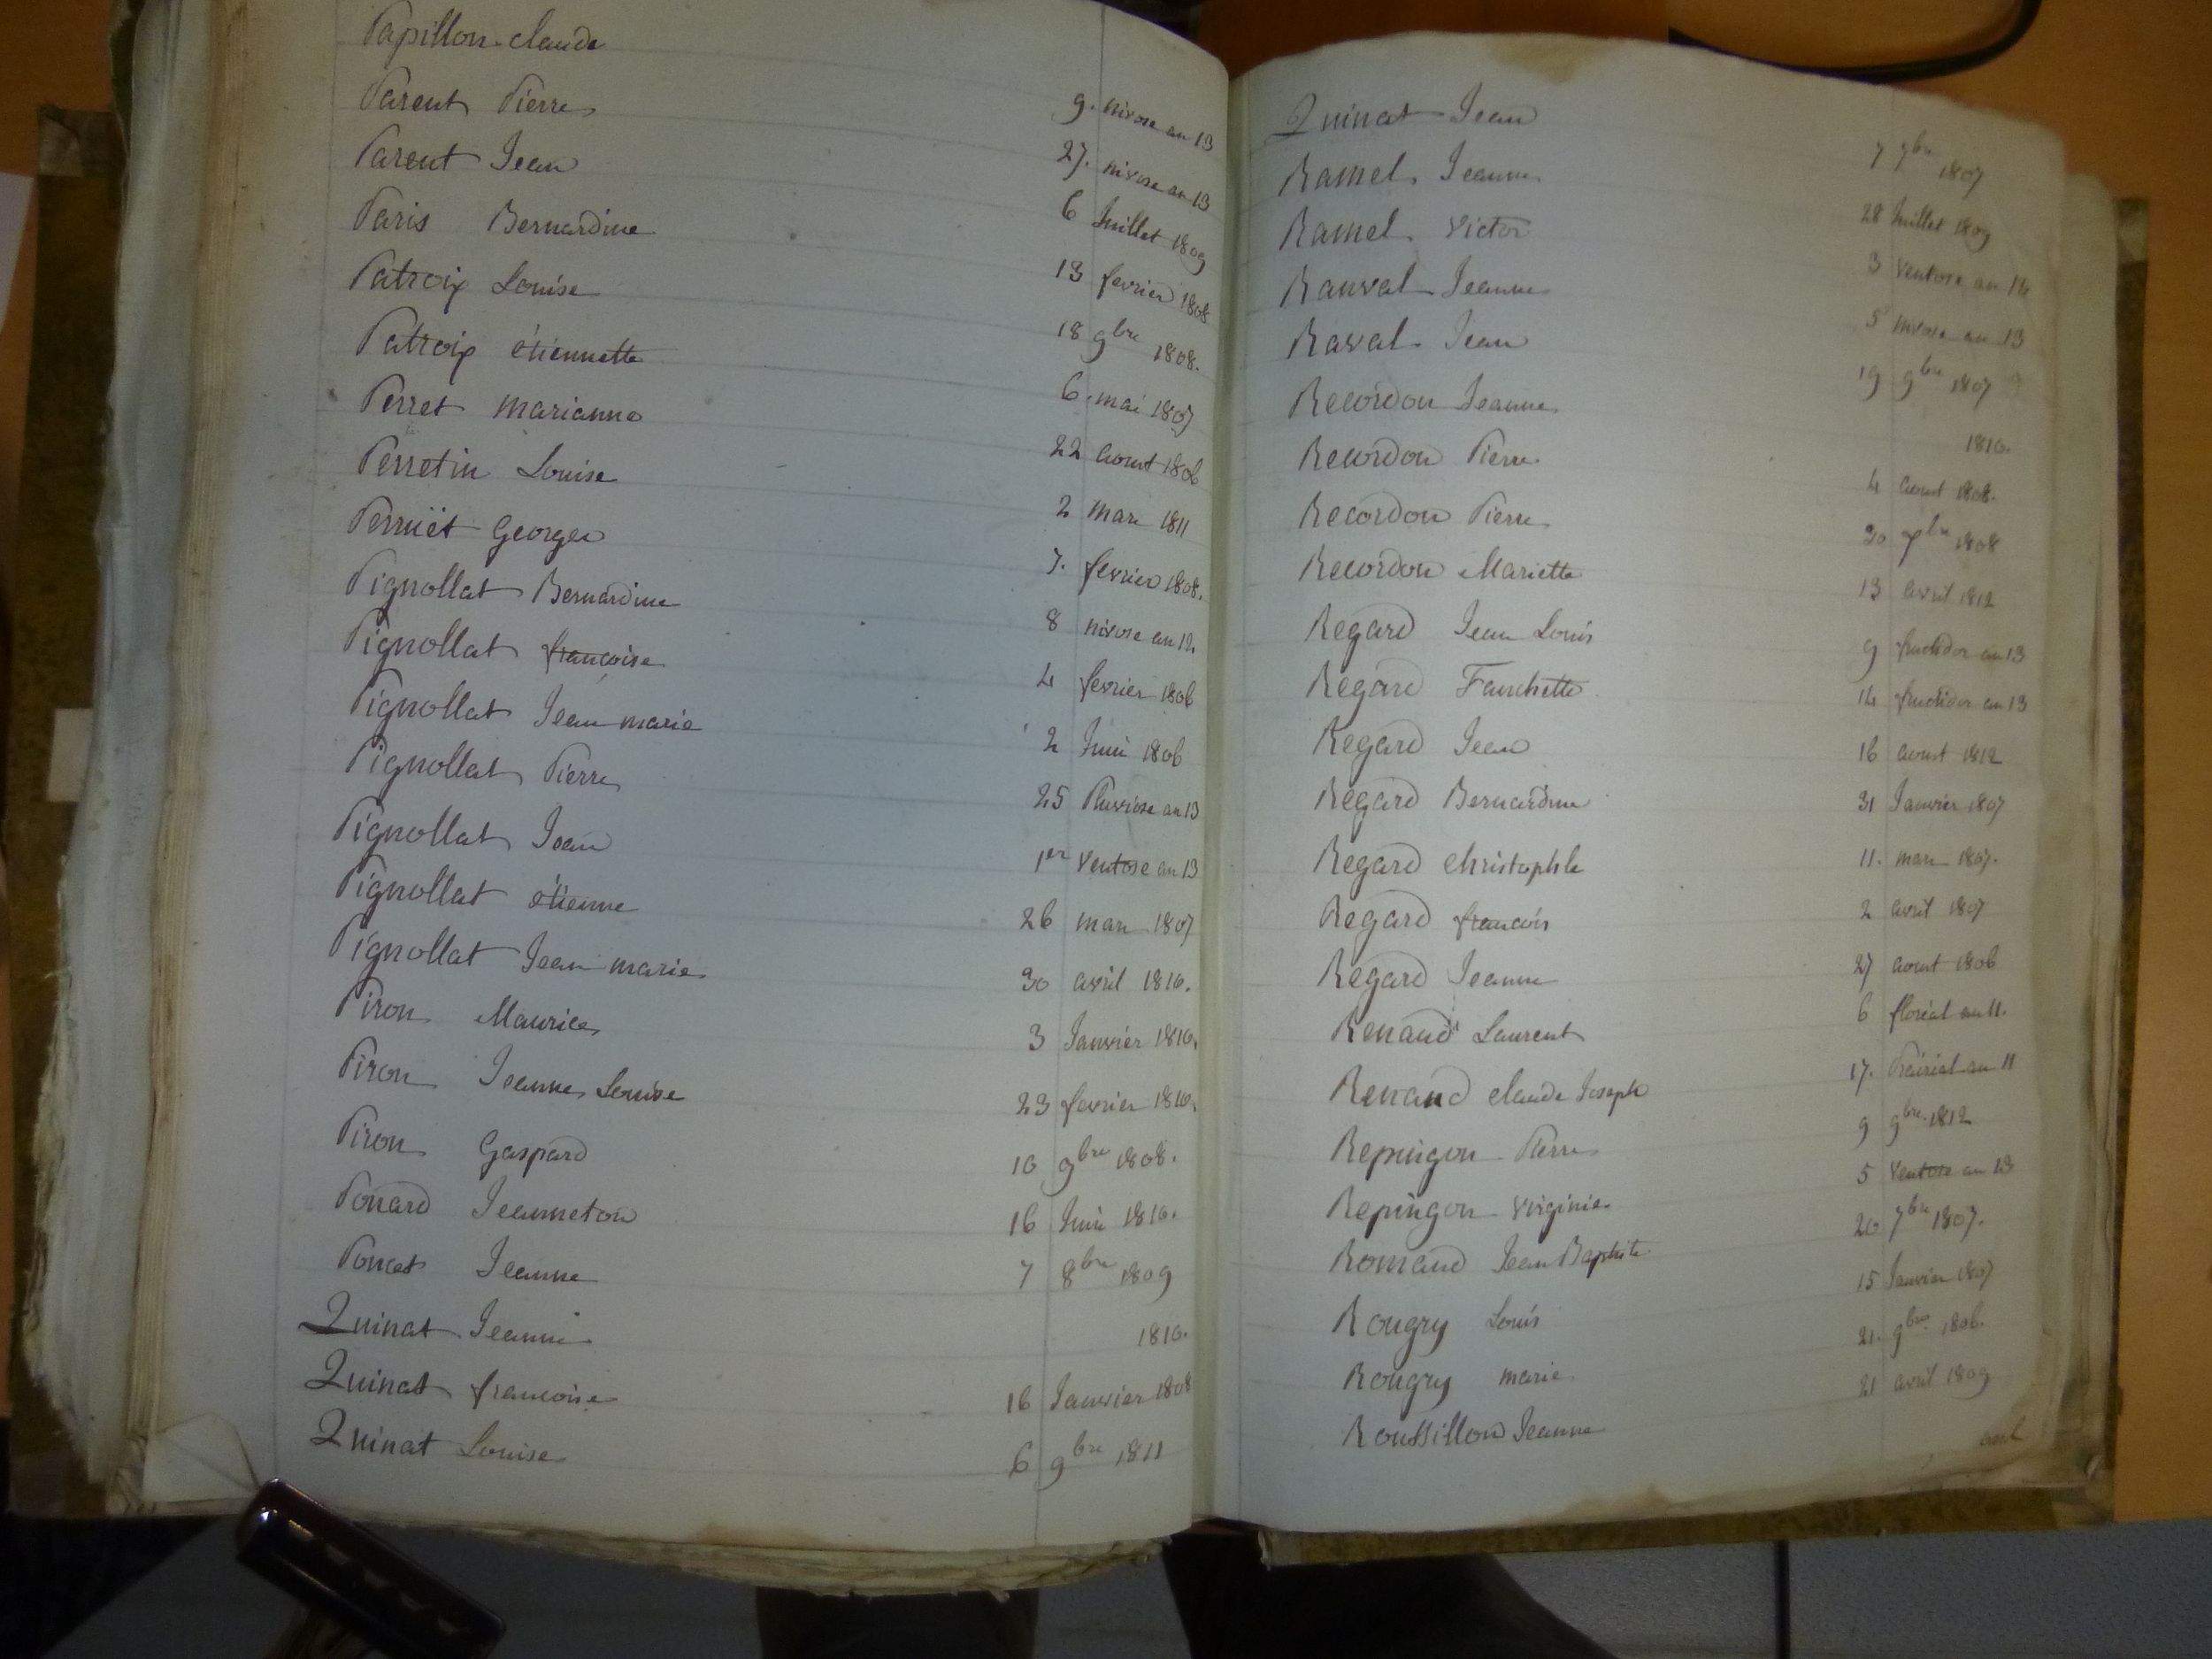 Papillon Claude 9. nivose an 13
Parent Pierre 27. nivose an 13
Parent Jean 6 Juillet 1809
Paris Bernardine 13 fevrier 1808
Patroix Louise 18 9bre 1808.
Patroix étiennette 6. mai 1807
Perret marianne 22 aoust 1806
Perretin Louise 2 mars 1811
Perruët Georges 7. fevrier 1808.
Pignollat Bernardine 8 nivose an 12
Pignollat françoise 4 fevrier 1806
Pignollat Jean marie 2 Juin 1806
Pignollat Pierre 25 Pluviose an 13
Pignollat Jean 1er ventose an 13
Pignollat étienne 26 mars 1807
Pignollat Jean marie 30 avril 1810.
Piron Maurice 3 Janvier 1810.
Piron Jeanne Louise 23 fevrier 1810.
Piron Gaspard 10 9bre 1808.
Ponard Jeanneton 16 Juin 1810.
Poncet Jeanne 7 8bre 1809
Quinat Jeanne 1810.
Quinat francoise 16 Janvier 1808
Quinat Louise 6 9bre 1811
Quinat Jean 7 9bre 1807
Ramel Jeanne 28 Juillet 1809
Ramel Victor 3 ventose an 12
Ranval Jeanne 5 nivose an 13
Raval Jean 19 9bre 1807
Recordon Jeanne 1810.
Recordon Pierre 4 aoust 1808.
Recordon Pierre 20 7bre 1808
Recordon Mariette 13 avril 1812
Regard Jean Louis 9 fructidor an 13
Regard Fanchette 14 fructidor an 13
Regard Jean 16 aoust 1812
Regard Bernardine 31 Janvier 1807
Regard christophle 11. mars 1807.
Regard francois 2 avril 1807
Regard Jeanne 27 aoust 1806
Renaud Laurent 6 floréal an 11.
Renaud claude Joseph 17. Prairial an 11
Repingon Pierre 9 9bre 1812
Repingon virginie 5 ventose an 13
Romand Jean Baptiste 20 7bre 1807.
Rougry Louis 15 Janvier 1807
Rougry marie 21. 9bre 1806.
Roussillon Jeanne 21 avril 1809